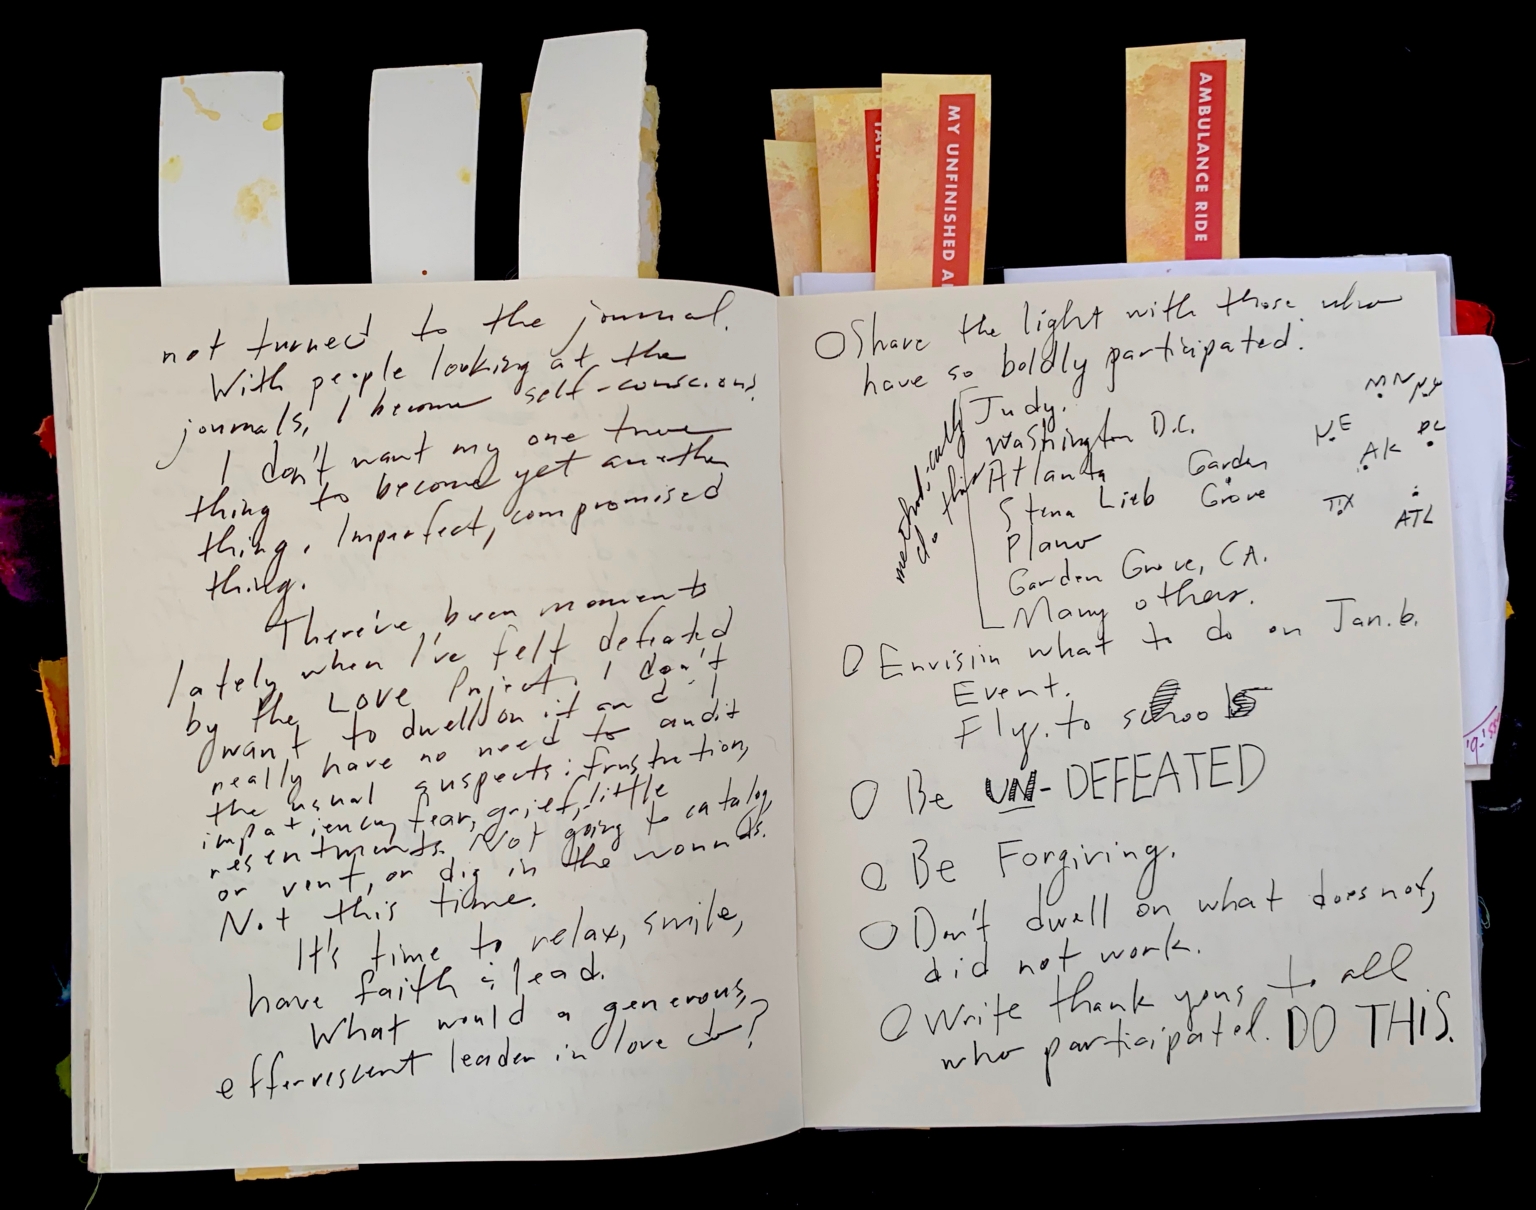 MY UNFINISHED
AMBULANCE RIDE
not turned to the journal.
With people looking at the
journals, I become self-conscious.
I don't want my one true
thing to become yet another
thing. Imperfect, compromised
thing.
There've been moments
lately when I've felt defeated
by the Love Project. I don't
want to dwell on it and I
really have no need to audit
the usual suspects: frustration,
impatiency, fear, grief, little
resentments. Not going to catalog,
or vent, or dig in the wounds.
Not this time.
It's time to relax, smile,
have faith & lead.
What would a generous,
effervescent leader in love do?
Share the light with those who
have so boldly participated.
methodically
do this
Judy.
Washington D.C.
Atlanta
Stena Lieb Garden Grove
Plano
Garden Grove, CA.
Many others.
MN NY
NE DC
AK
TX ATL
Envisiin what to do on Jan. 6.
Event.
Fly. to schools
Be UN-DEFEATED
Be Forgiving.
Don't dwell on what does not,
did not work.
Write thank yous to all
who participated. DO THIS.